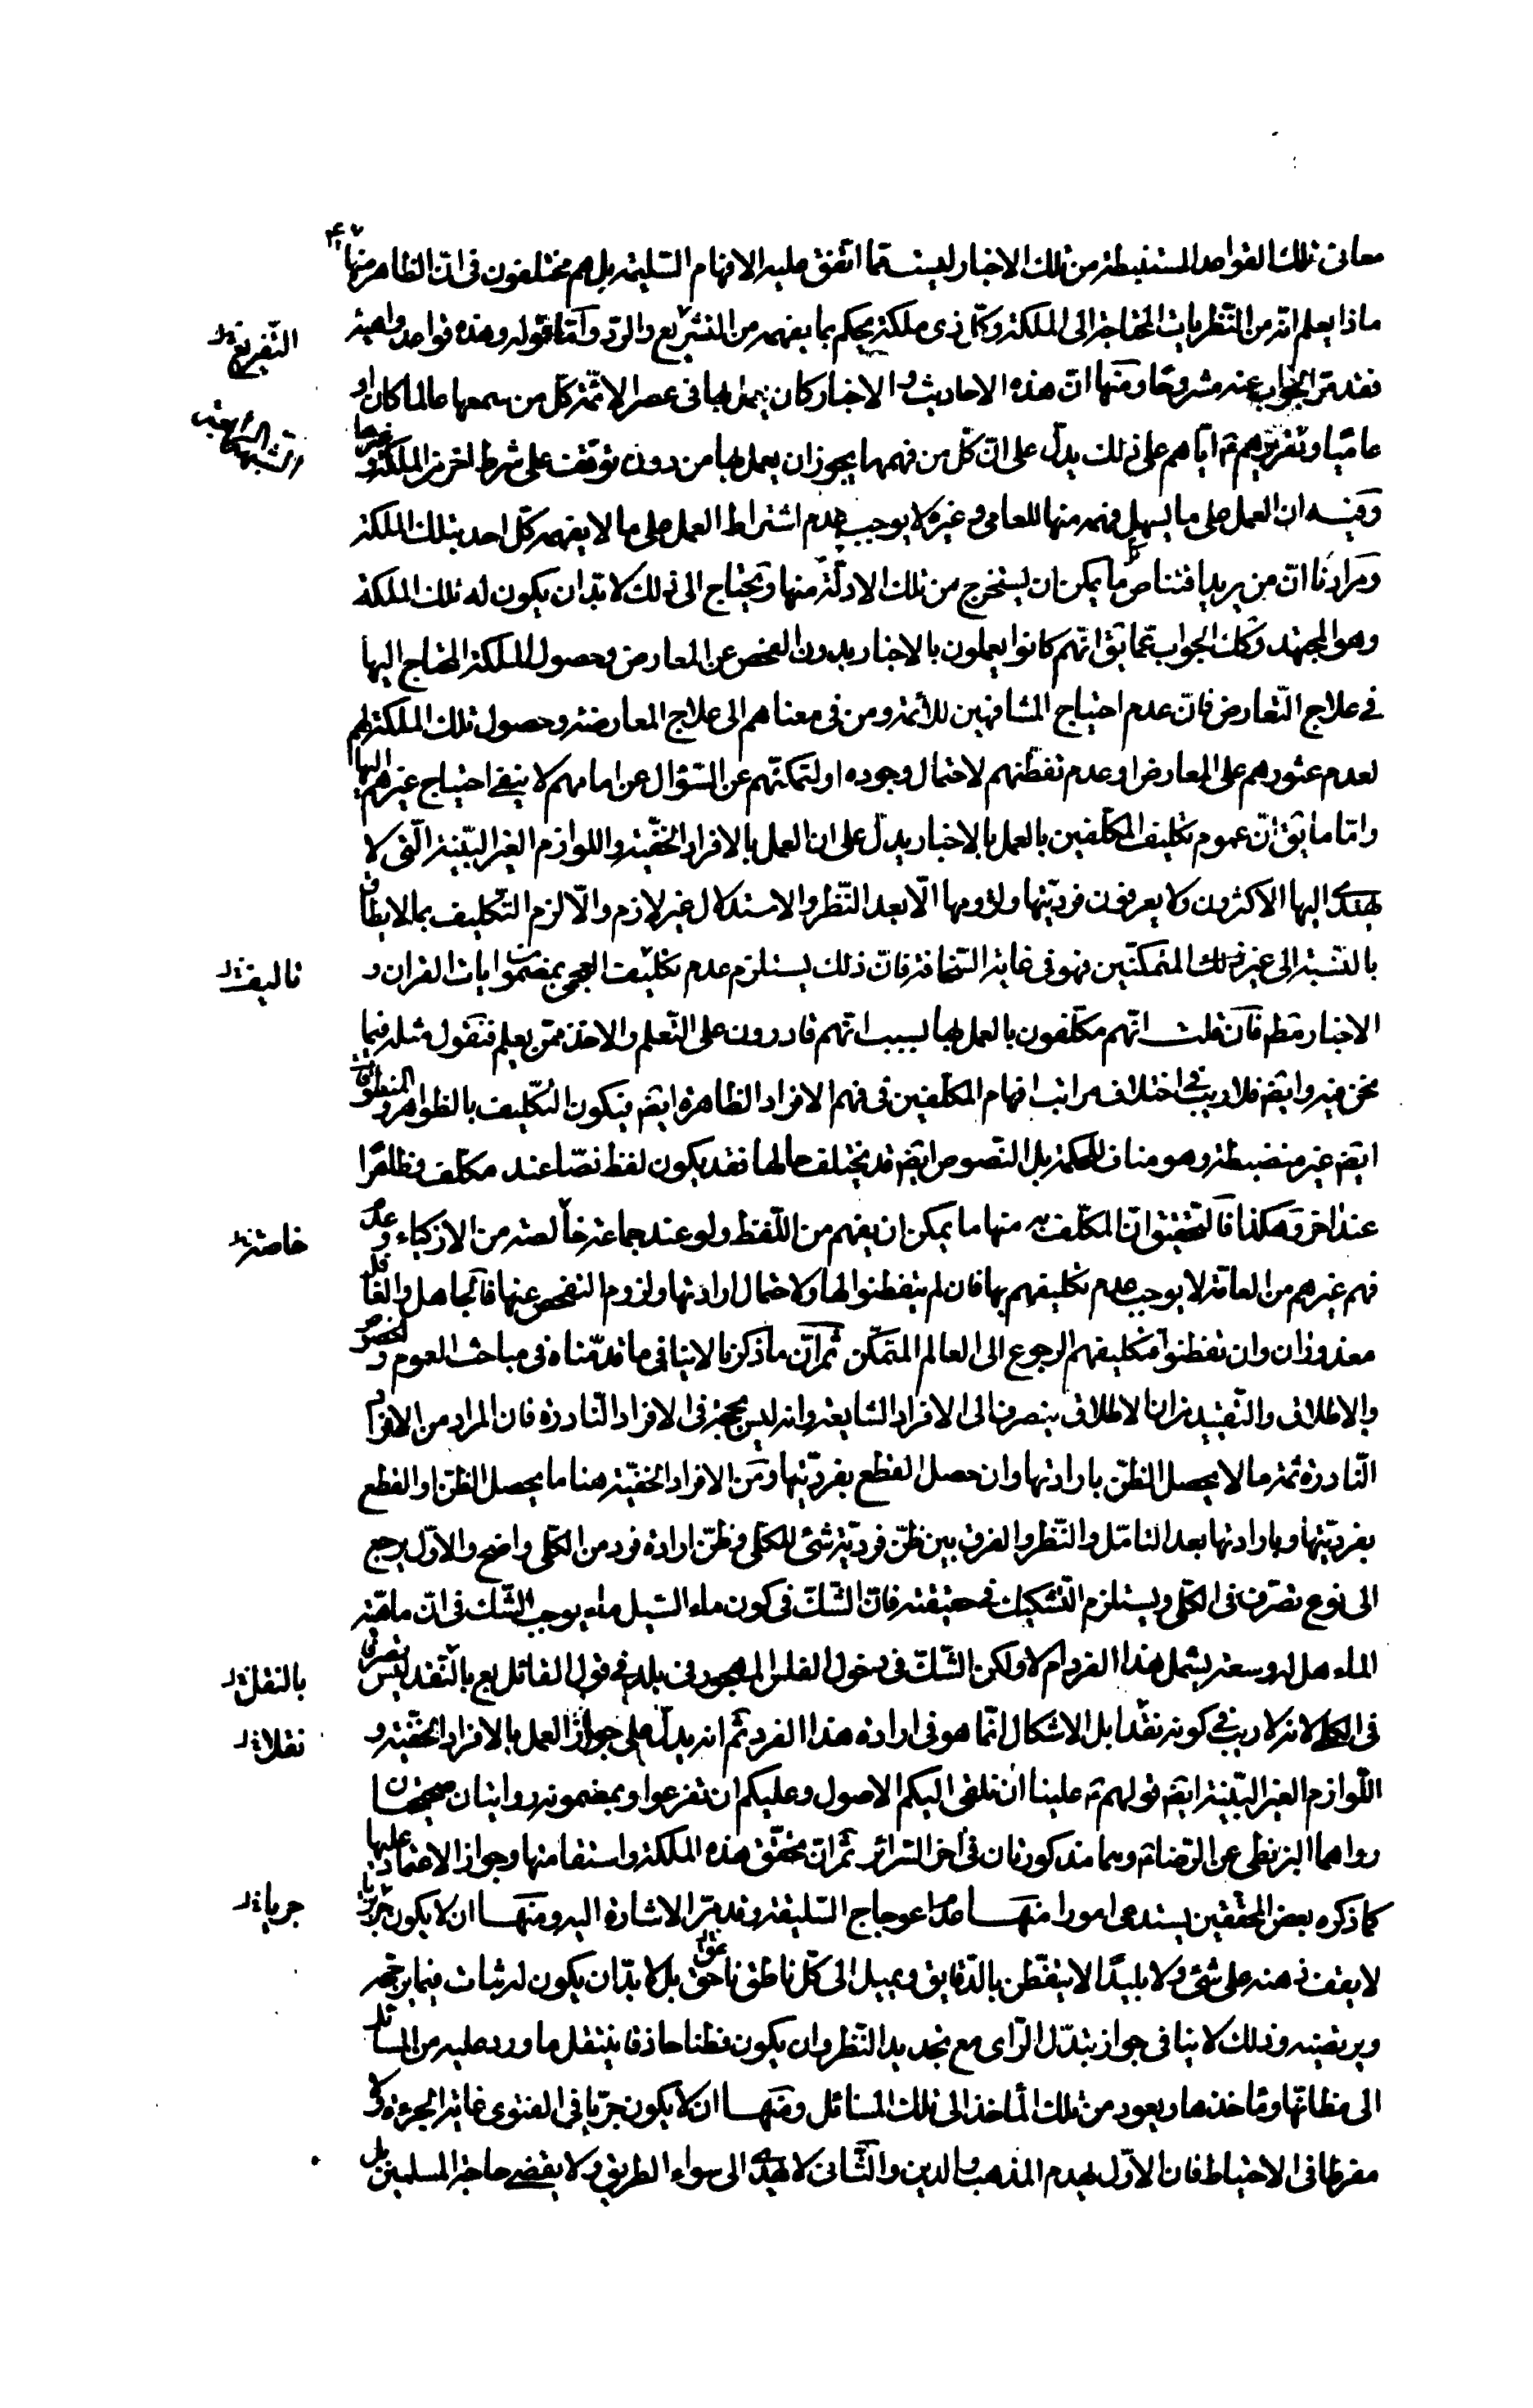 معانى تلك القواعد المستنبطة من تلك الاخبار ليست ممّا اتّفق عليه الافهام السّليمة بل هم مختلفون فى انّ الظاهر منها
ماذا يعلم انّه من النّظريات المحتاجة الى الملكة وكلّ ذى ملكة يحكم بما يفهمه من التشريع والردّ وامّا قوله وهذه قواعد واهية
التفريع خ‌ل
فقد مرّ الجواب عنه مشروحًا ومنها انّ هذه الاحاديث والاخبار كان يعمل بها فى عصر الائمّة كلّ من سمعها عالما كان او
عاميّا وتقريرهم ع ايّاهم على ذلك يدلّ على انّ كلّ من فهمها يجوز ان يعمل بها من دون توقّف على شرط اخر من الملكة وغيرها
وفيه ان العمل على ما يسهل فهمه منها للعامى وغيره لا يوجب عدم اشتراط العمل على ما لا يفهمه كلّ احد بتلك الملكة
ومرادنا انّ من يريد اقتناص كل ما يمكن ان يستخرج من تلك الادلّة منها ويحتاج الى ذلك لا بدّ ان يكون له تلك الملكة
وهو المجتهد وكذلك الجواب عمّا يق انّهم كانوا يعملون بالاخبار بدون الفحص عن المعارض وحصول الملكة المحتاج اليها
فى علاج التّعارض فانّ عدم احتياج المشافهين للائمة ومن فى معناهم الى علاج المعارضة وحصول تلك الملكة لهم
لعدم عثورهم على المعارض او عدم تفطّنهم لاحتمال وجوده او لتمكّنهم عن السّؤال عن امامهم لا ينفى احتياج غيرهم اليها
وامّا ما يق انّ عموم تكليف المكلّفين بالعمل بالاخبار يدلّ على ان العمل بالافراد الخفيّة واللوازم الغير البيّنة الّتى لا
يهتدى اليها الاكثرون ولا يعرفون فرديّتها ولزومها الّا بعد النّظر والاستدلال غير لازم والّا لزم التّكليف بما لا يطاق
بالنّسبة الى غير ذلك المتمكّنين فهو فى غاية السّخافة فانّ ذلك يستلزم عدم تكليف العجمى بمضمون ايات القران و
تاليف خ‌ل
الاخبار مط فان قلت انّهم مكلّفون بالعمل بها بسبب انّهم قادرون على التّعلم والاخذ ممّن يعلم فنقول مثله فيما
نحن فيه وايض فلا ريب فى اختلاف مراتب افهام المكلّفين فى فهم الافراد الظاهرة ايض فيكون التّكليف بالظواهر والمنطوقات
ايض غير منضبطة وهو مناف للحكمة بل النّصوص ايض قد يختلف حالها فقد يكون لفظ نصّا عند مكلّف وظاهرًا
عند اخر وهكذا فالتحقيق انّ المكلّف به منها ما يمكن ان يفهم من اللّفظ ولو عند جماعة خالصة من الاذكياء وعدم
خاصة خ‌ل
فهم غيرهم من العامّة لا يوجب عدم تكليفهم بها فان لم يتفطنوا لها ولاحتمال ارادتها ولزوم التفحص عنها فالجاهل والغافل
معذوران وان تفطنوا فتكليفهم الرجوع الى العالم المتمكّن ثم انّ ما ذكرنا لا ينافى ما قدّمناه فى مباحث العموم والخصوص
والاطلاق والتّقييد من ان الاطلاق ينصرف الى الافراد الشايعة وانه ليس بحجة فى الافراد النّادرة فان المراد من الافراد
النّادرة ثمة ما لا يحصل الظنّ بارادتها وان حصل القطع بفرديّتها ومن الافراد الخفيّة هنا ما يحصل الظنّ او القطع
بفرديّتها وبارادتها بعد التامّل والنّظر والفرق بين ظنّ فرديّة شىء للكلّى وظنّ ارادة فرد من الكلّى واضح والاوّل يرجع
الى نوع تصرّف فى الكلّى ويستلزم التّشكيك فى حقيقته فانّ الشّكّ فى كون ماء السّيل ماء يوجب الشّكّ فى انّ ماهيّة
الماء هل له وسعة يشمل هذا الفرد ام لا ولكن الشّكّ فى دخول الفلس المهجور فى بلد فى قول القائل بع بالنّقد ليس تصرفا
بالنقل خ‌ل
فى الكلى لانه لا ريب فى كونه نقدا بل الاشكال انّما هو فى ارادة هذا الفرد ثم انه يدلّ على جواز العمل بالافراد الخفيّة و
نقلا خ‌ل
اللّوازم الغير البيّنة ايض قولهم ع علينا ان نلقى اليكم الاصول وعليكم ان تفرعوا وبمضمونه روايتان صحيحتان
رواهما البزنطى عن الرّضا ع وهما مذكورتان فى اخر السّرائر ثم انّ تحقّق هذه الملكة واستقامتها وجواز الاعتماد عليها
كما ذكره بعض المحقّقين يستدعى امورا منها عدم اعوجاج السّليقة وقد مرّ الاشارة اليه ومنها ان لا يكون جربزيا
جربا خ‌ل
لا يقف ذهنه على شىء ولا بليدًا لا يتفطّن بالدّقايق ويميل الى كلّ ناطق ناعق بل لا بدّ ان يكون له ثبات فيما يرجّحه
ويرتضيه وذلك لا ينافى جواز تبدّل الرّاى مع تجديد النّظر وان يكون فطنا حاذقا ينتقل ما ورد عليه من المسائل
الى مظانّها ومآخذها ويعود من تلك المأخذ الى تلك المسائل ومنها ان لا يكون جريّا فى الفتوى غاية الجرءة ولا
مفرطا فى الاحتياط فان الاوّل يهدم المذهب والدين والثّانى لا يهدى الى سواء الطريق ولا يقضى حاجة المسلمين بل